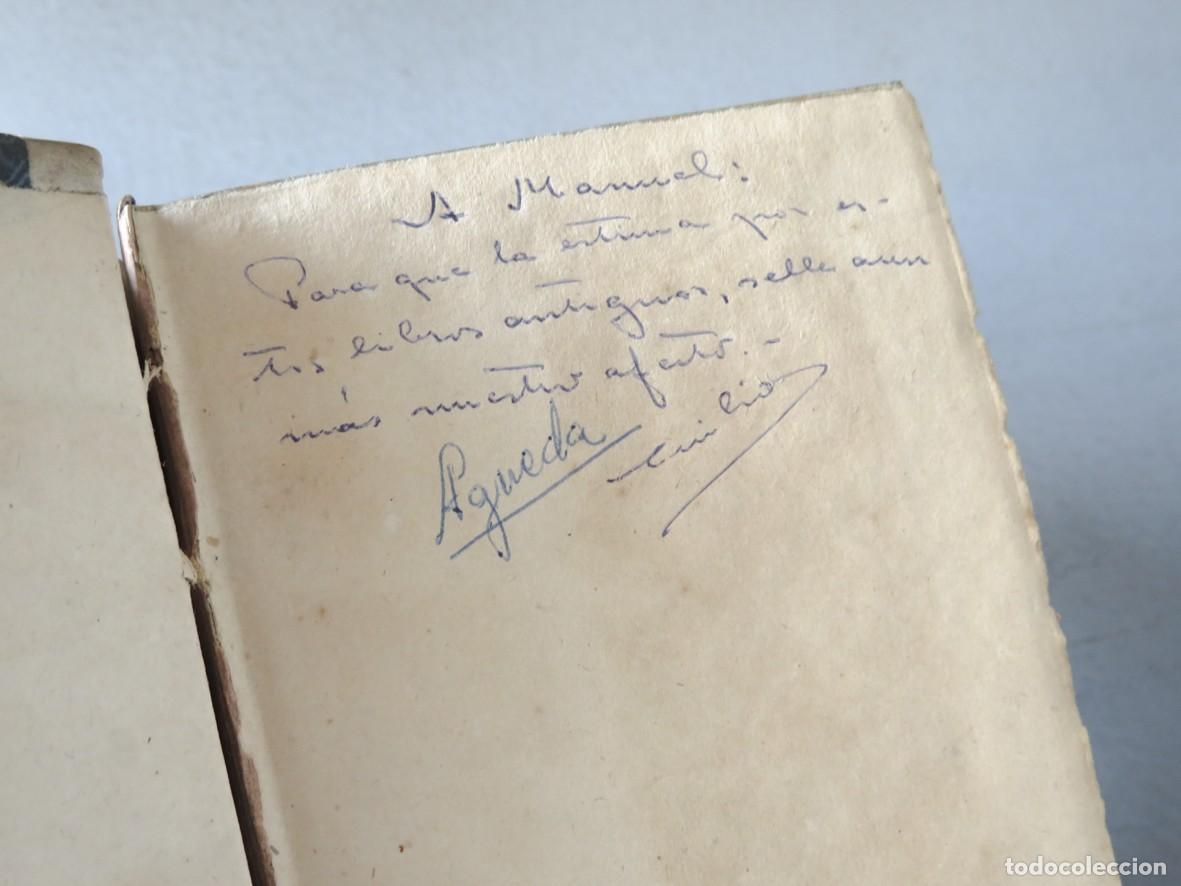 A Manuel:
Para que la estima por es-
tos libros antiguos, selle aun
más nuestro afecto.-
Agueda Emilio
todocoleccion